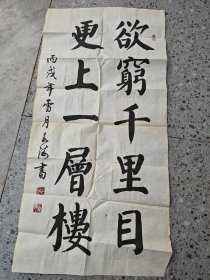 欲窮千里目
更上一層樓
丙戌年雪月
書